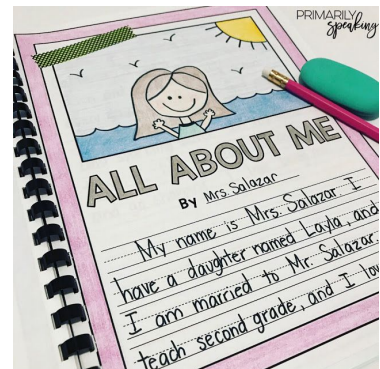 PRIMARILY
speaking
ALL ABOUT ME
By Mrs. Salazar
My name is Mrs. Salazar. I
have a daughter named Layla, and
I am married to Mr. Salazar.
teach second grade, and I